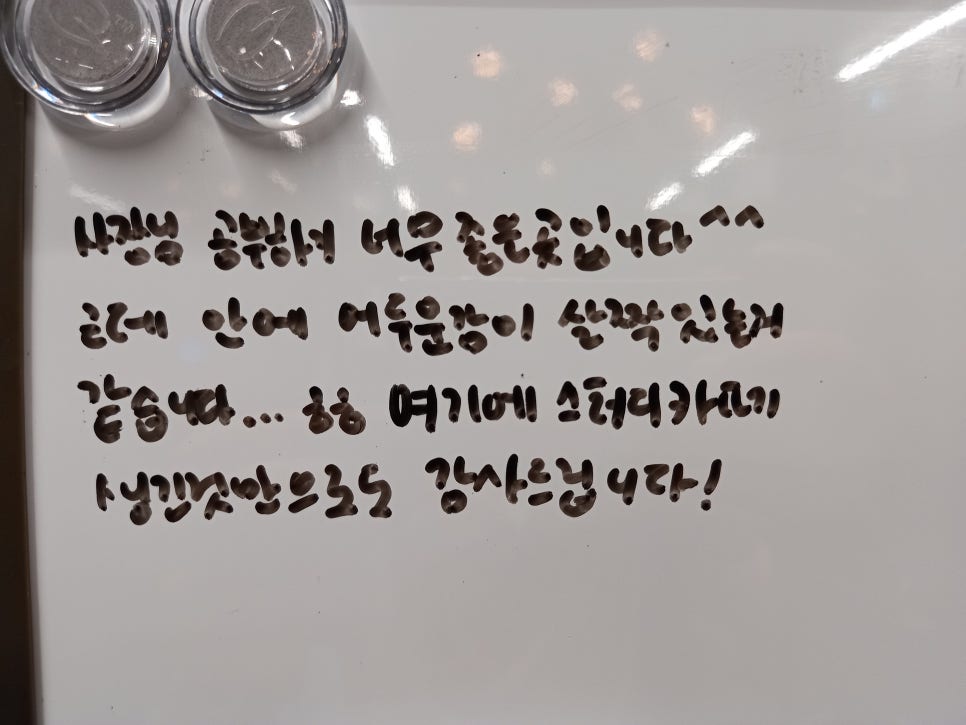 사장님 공부하기 너무 좋은곳입니다^^
근데 안에 어두운감이 살짝있는게
같습니다... ㅎㅎ 여기에 스터디카페가
생긴것만으로도 감사드립니다!